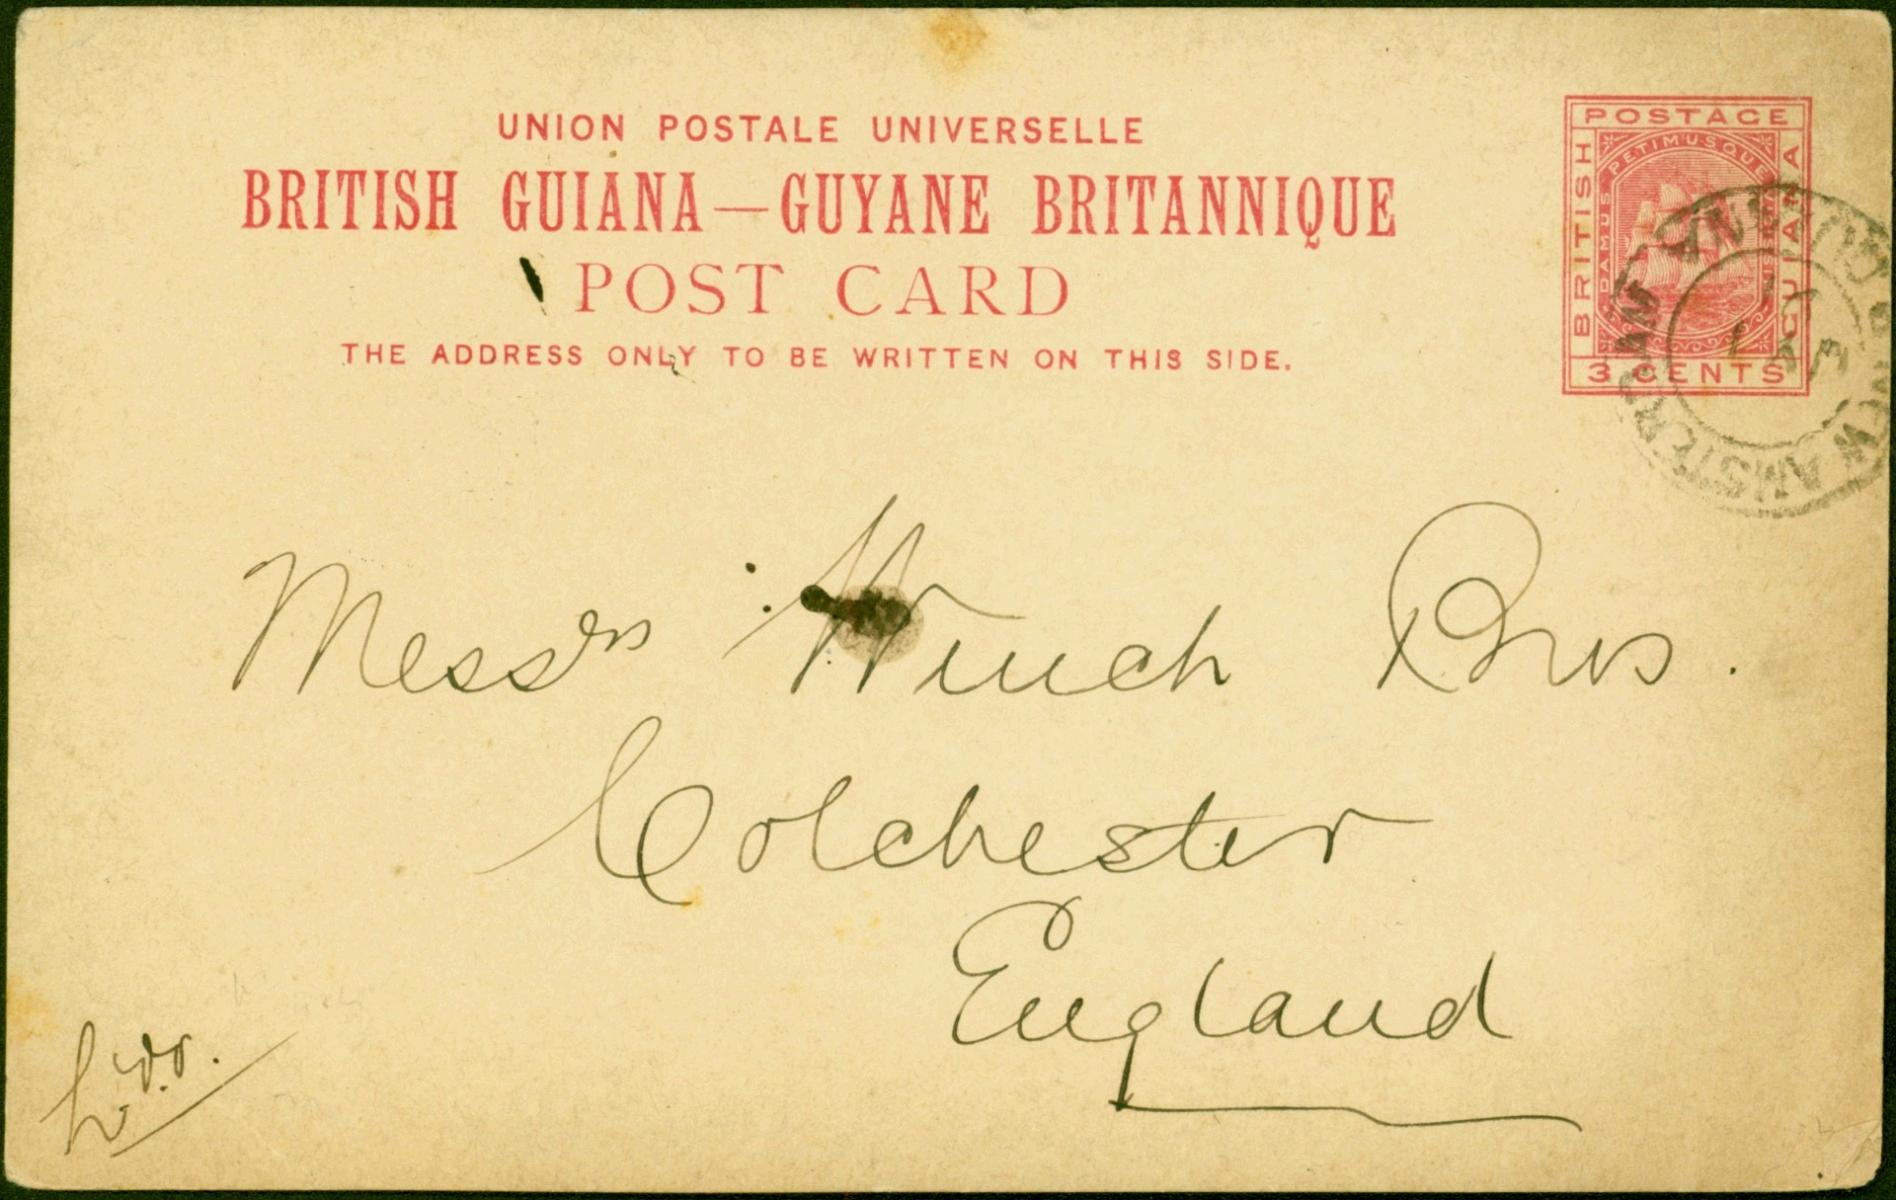 UNION POSTALE UNIVERSELLE
BRITISH GUIANA—GUYANE BRITANNIQUE
POST CARD
THE ADDRESS ONLY TO BE WRITTEN ON THIS SIDE.
POSTAGE
BRITISH
GUIANA
DAMUS PETIMUSQUE
3 CENTS
NEW AMSTERDAM
Messrs Winch Bros.
Colchester
England